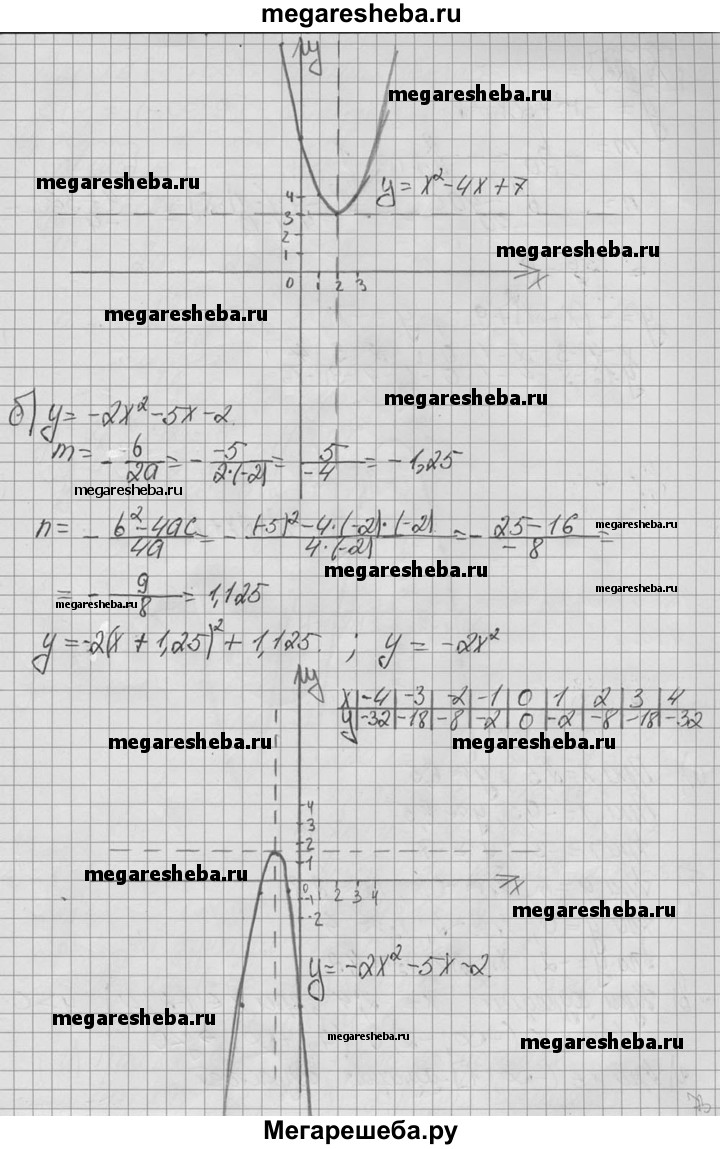 megaresheba.ru
у
megaresheba.ru
megaresheba.ru
y = x² - 4x + 7
4
3
2
1
megaresheba.ru
0 1 2 3 x
megaresheba.ru
megaresheba.ru
б) y = -2x² - 5x - 2.
m = - b/2a = - -5/2·(-2) = 5/-4 = -1,25
megaresheba.ru
n = - b² - 4ac/4a = - (-5)² - 4·(-2)·(-2)/4·(-2) = - 25 - 16/-8 =
megaresheba.ru
megaresheba.ru
= - 9/8 = 1,125
megaresheba.ru
megaresheba.ru
y = -2(x + 1,25)² + 1,125. ; y = -2x²
у
x | -4 | -3 | -2 | -1 | 0 | 1 | 2 | 3 | 4
y | -32 | -18 | -8 | -2 | 0 | -2 | -8 | -18 | -32
megaresheba.ru
megaresheba.ru
4
3
2
1
megaresheba.ru
0 1 2 3 4 x
-1
-2
megaresheba.ru
y = -2x² - 5x - 2.
megaresheba.ru
megaresheba.ru
megaresheba.ru
Мегарешеба.ру